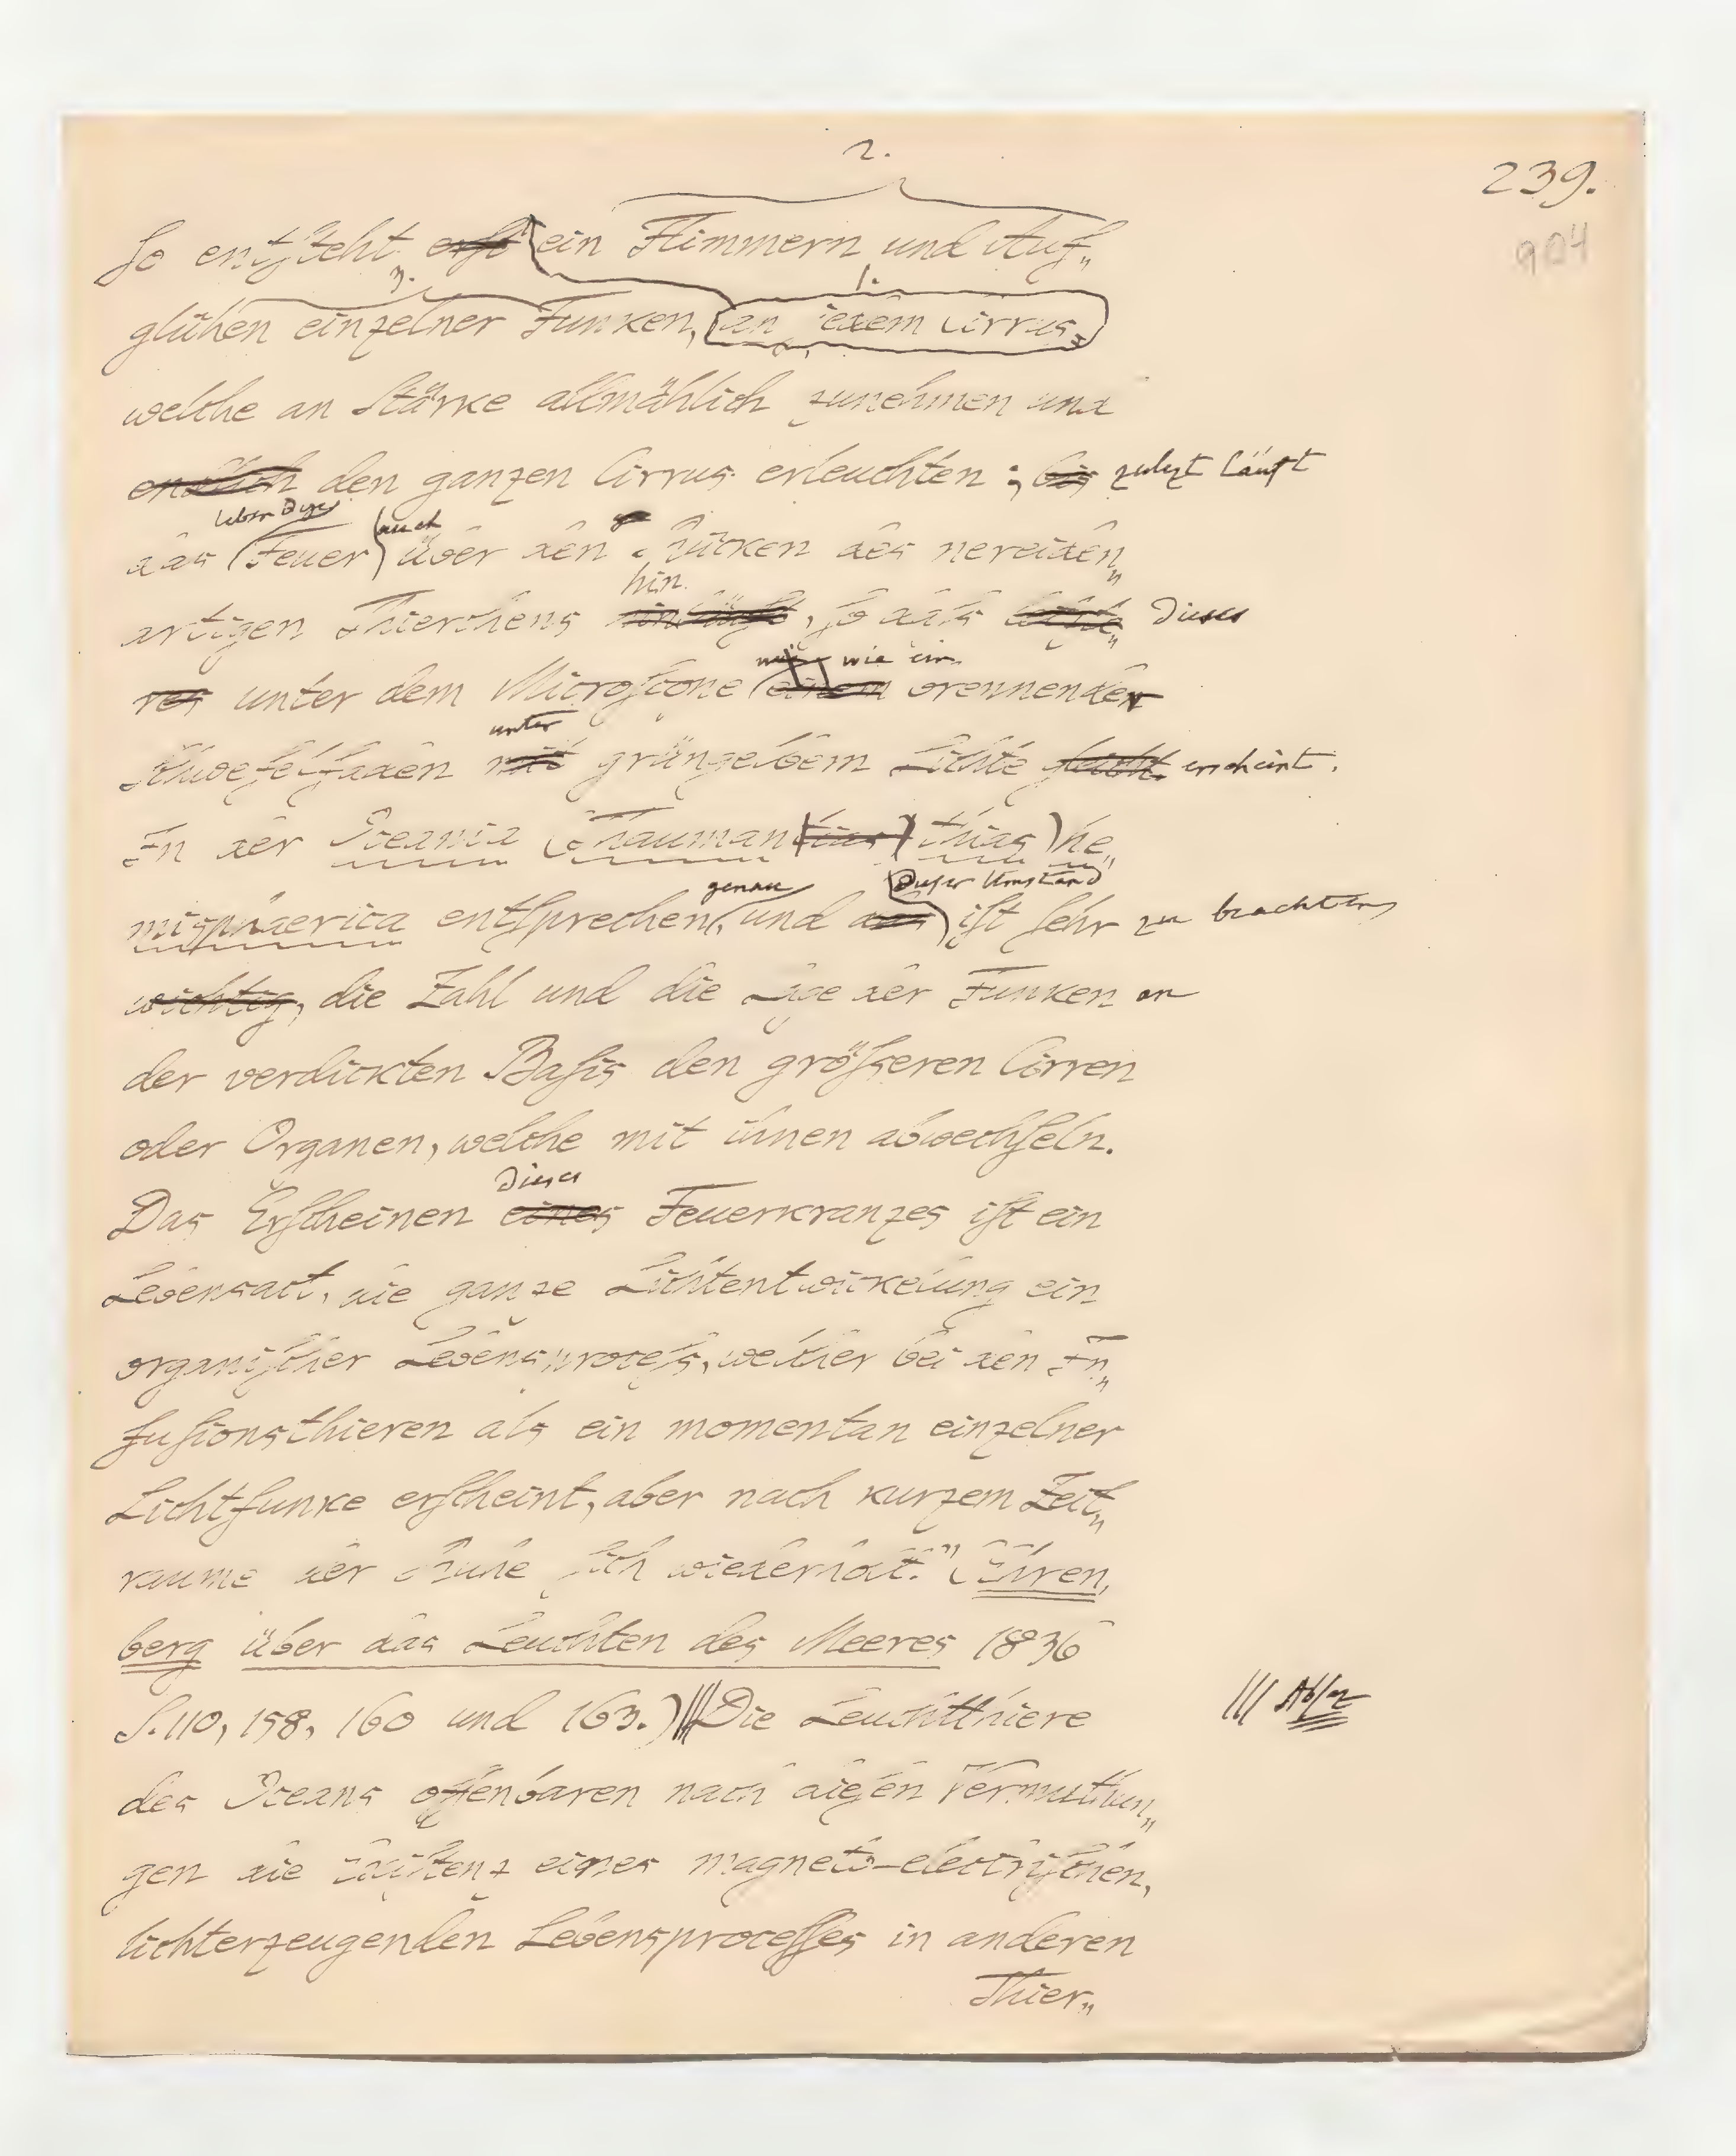 2.
239.
904
So entsteht erst ein Flimmern und Auf„
3. 1.
glühen einzelner Funken, an jedem Cirrus,
welche an Stärke allmählich zunehmen und
endlich den ganzen Cirrus erleuchten; bis zulezt läuft
lebendige auch
das Feuer über den Rücken des nereiden„
hin
artigen Thierchens hinläuft, so dass dieses
wie ein
res unter dem Microscope einem brennenden
unter
Schwefelfaden mit grüngelbem Lichte erscheint.
In der Oceania (Thaumantias) thias) he„
genau Dieser Umstand
misphaerica entsprechen, und das ist sehr zu beachten
wichtig, die Zahl und die Lage der Funken an
der verdickten Basis den grösseren Cirren
oder Organen, welche mit ihnen abwechseln.
dieses
Das Erscheinen eines Feuerkranzes ist ein
Lebensact, die ganze Lichtentwickelung ein
organischer Lebensprocess, welcher bei den In„
fusionsthieren als ein momentan einzelner
Lichtfunke erscheint, aber nach kurzem Zeit„
raume der Ruhe sich wiederholt." (Ehren„
berg über das Leuchten des Meeres 1836
S. 110, 158, 160 und 163.) ||| Die Leuchtthiere ||| Absaz
des Oceans offenbaren nach diesen Vermuthun„
gen die Existenz eines magneto-electrischen,
lichterzeugenden Lebensprocesses in anderen
Thier„